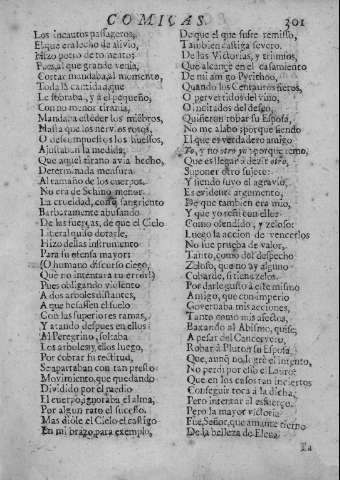 COMICAS. 301
Los incautos passageros,
El que era lecho de alivio,
Hizo potro de tormentos
Pues, al que grande venia,
Cortar mandaba, al momento,
Toda la cantidad que
Le sobraba, y à el pequeño,
Con no menor tirania,
Mandava estèder los miẽbros,
Hasta que los nervios rotos,
O descompuestos los huessos,
Ajustaban la medida,
Que aquel tirano avia hecho,
Determinada mensura
Al tamaño de los cuerpos.
No era de Scinio, menor
La crueldad, como sangriento
Barbaramente abusando
De las fuerças, de que el Cielo
Liberal quiso dotarle,
Hizo dellas instrumento
Para su ofensa mayor:
(O humano discurso ciego,
Què no intentarà tu error!)
Pues obligando violento
A dos arboles distantes,
A que besassen el suelo
Con las superiores ramas,
Y atando despues en ellos
Al Peregrino, soltaba
Los arboles, y ellos luego,
Por cobrar su rectitud,
Se apartaban con tan presto
Movimiento, que quedando
Dividido por el medio
El cuerpo, ignoraba el alma,
Por algun rato el sucesso.
Mas diòle el Cielo el castigo
En mi brazo, para exemplo,
De que el que sufre remisso,
Tambien castiga severo.
De las Victorias, y triunfos,
Que alcancè en el casamiento
De mi amigo Pyrithoo,
Quando los Centauros fieros,
O pervertidos del vino,
O incitados del deseo,
Quisieron robar su Esposa,
No me alabo; porque siendo
El que es verdadero amigo
Yo, y no otro yo; porque temo,
Que es llegar à dezir otro,
Suponer otro sujeto:
Y siendo suyo el agravio,
Es evidente argumento,
De que tambien era mio,
Y que yo reñi con ellos
Como ofendido, y zeloso:
Luego la accion de vencerlos
No fue prueba de valor,
Tanto, como del despecho
Zeloso, que no ay alguno
Cobarde, si tiene zelos.
Por darle gusto à este mismo
Amigo, que con imperio
Governaba mis acciones,
Tanto como mis afectos,
Baxando al Abismo, quise,
A pesar del Cancervero,
Robar à Pluton su Esposa,
Que, aunq̃ no logrè el intento,
No perdì por esso el Lauro:
Que en los casos tan inciertos
Conseguir toca à la dicha,
Pero intentar al esfuerço.
Pero la mayor victoria
Fue, Señor, que amante tierno
De la belleza de Elena